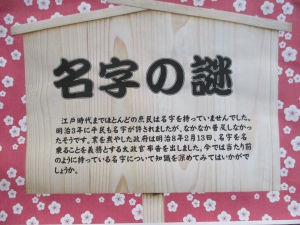 名字の謎
江戸時代までほとんどの庶民は名字を持っていませんでした。
明治3年に平民も名字が許されましたが、なかなか普及しなかっ
たそうです。業を煮やした政府は明治8年2月13日、名字を名
乗ることを義務とする太政官布告を出しました。今では当たり前
のように持っている名字について知識を深めてみてはいかがで
しょうか。